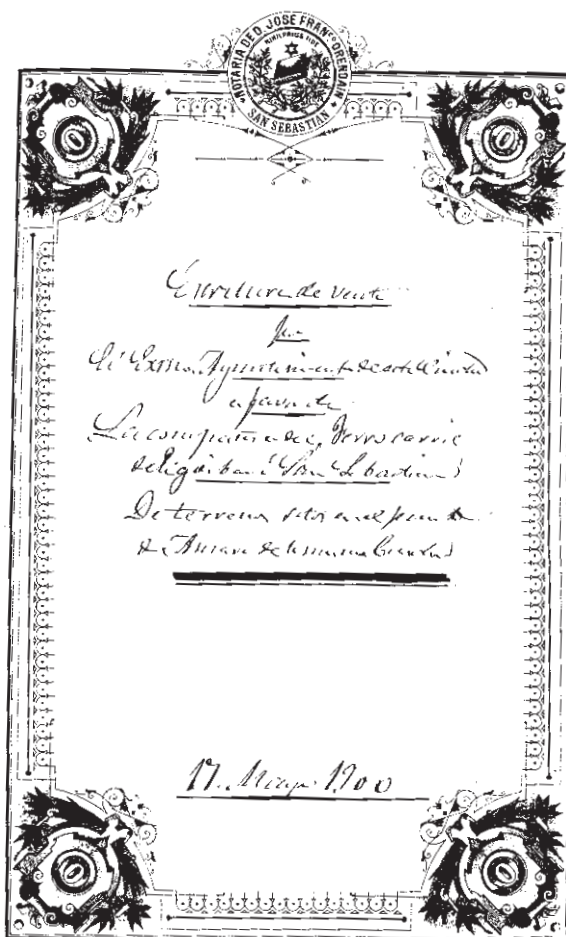 NOTARIA DE D. JOSÉ FRANCO ORENDAIN
NIHIL PRIUS FIDE
SAN SEBASTIAN
Escritura de venta
por
El Exmo. Ayuntamiento de esta Ciudad
a favor de
La compañia del Ferrocarril
de Elgoibar á San Sebastian
De terrenos sitos en el punto
de Amara de la misma Ciudad
17. Mayo 1900